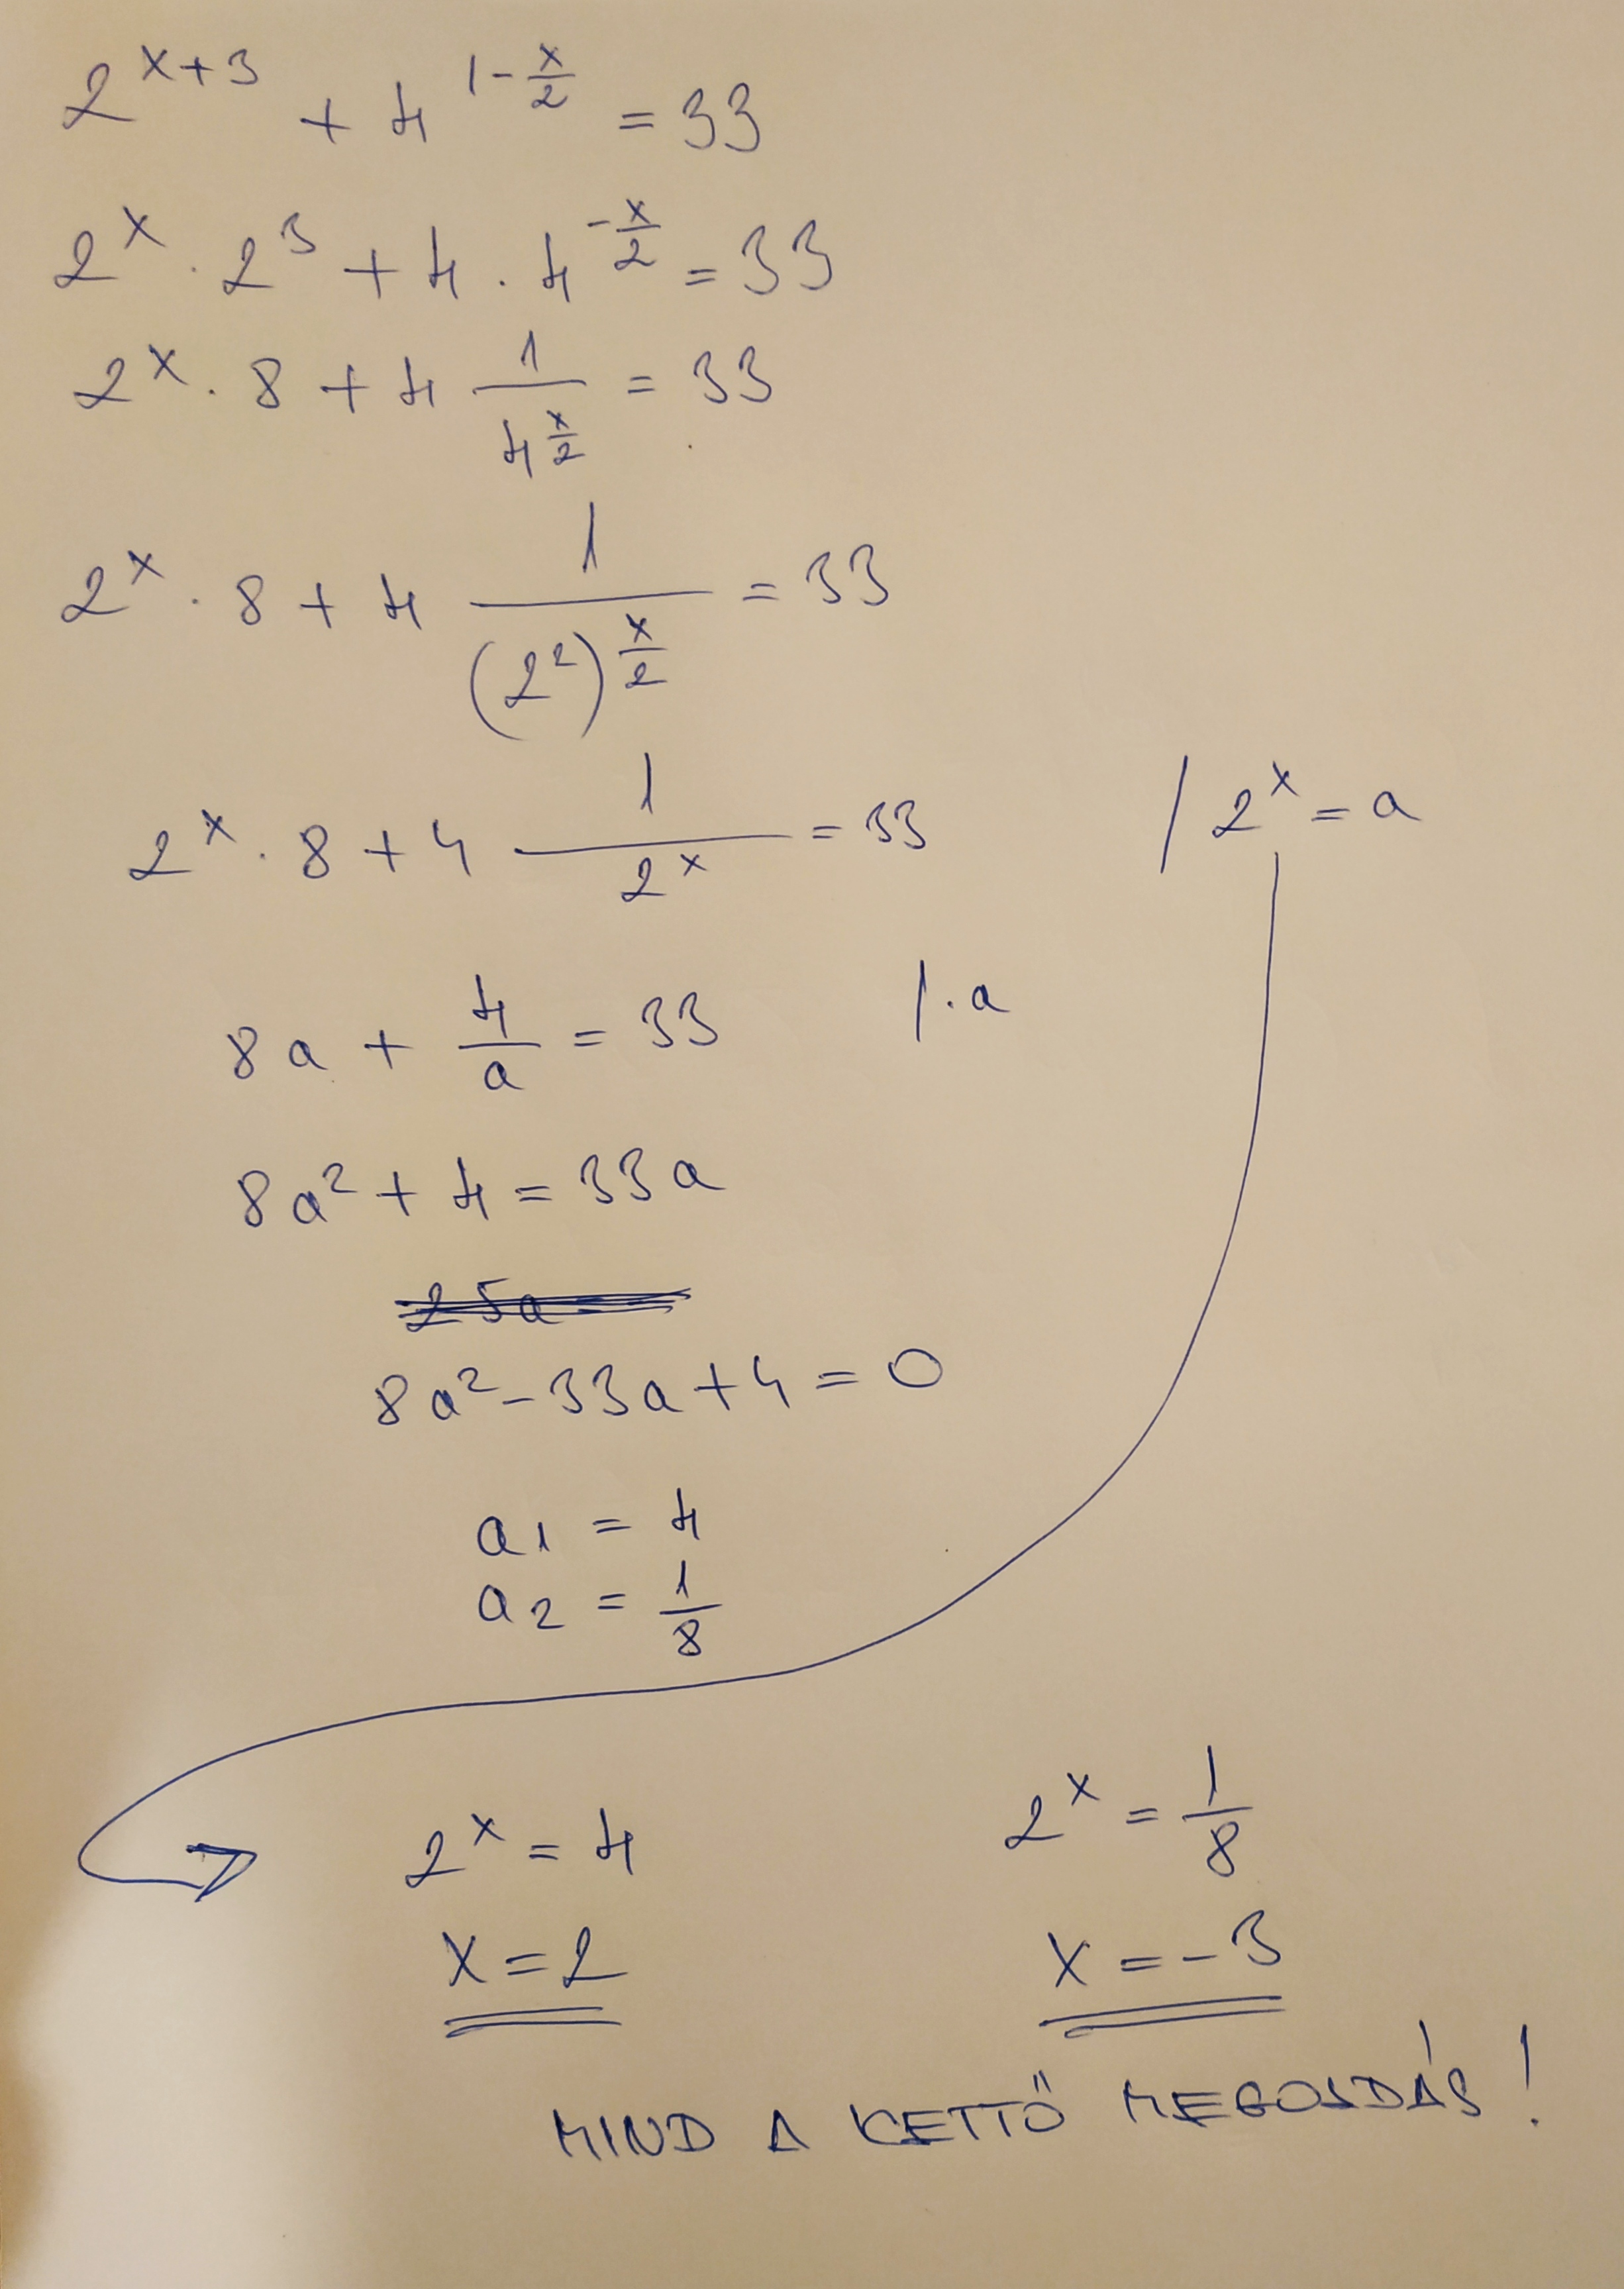 2^(x+3) + 4^(1-x/2) = 33
2^x · 2^3 + 4 · 4^(-x/2) = 33
2^x · 8 + 4 1/4^(x/2) = 33
2^x · 8 + 4 1/(2^2)^(x/2) = 33
2^x · 8 + 4 1/2^x = 33 / 2^x = a
8a + 4/a = 33 /·a
8a² + 4 = 33a
25a
8a² - 33a + 4 = 0
a1 = 4
a2 = 1/8
2^x = 4 2^x = 1/8
x = 2 x = -3
MIND A KETTŐ MEGOLDÁS!